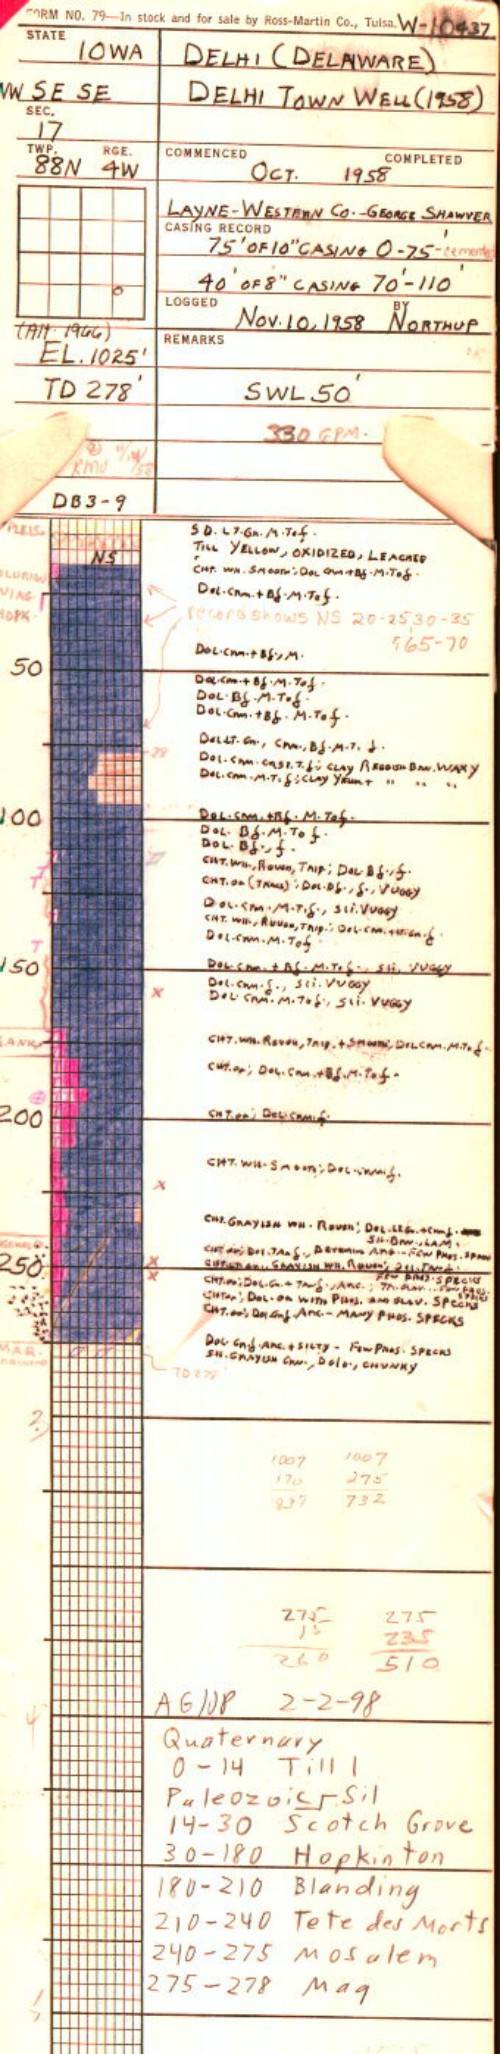 FORM NO. 79—In stock and for sale by Ross-Martin Co., Tulsa. W-10437
STATE
IOWA
DELHI (DELAWARE)
NW SE SE
DELHI TOWN WELL (1958)
SEC.
17
TWP. RGE.
88N 4W
COMMENCED COMPLETED
OCT. 1958
LAYNE-WESTERN CO.-GEORGE SHAWVER
CASING RECORD
75' OF 10" CASING 0-75' cemented
40' OF 8" CASING 70'-110'
LOGGED BY
NOV. 10, 1958 NORTHUP
(Alt. 1966)
EL. 1025'
REMARKS
TD 278'
SWL 50'
330 GPM.
RMV
DB3-9
PLEIS.
NS
SD. LT. GN. M. TO f.
TILL YELLOW, OXIDIZED, LEACHED
CHT. WH. SMOOTH; DOL. CRM + Bf. M. TO f.
DOL. CRM. + Bf. M. TO f.
record shows NS 20-25, 30-35
& 65-70
DOL. CRM. + Bf., M.
50
DOL. CRM + Bf. M. TO f.
DOL. Bf. M. TO f.
DOL. CRM. + Bf. M. TO f.
DOL. LT. GN., CRM., Bf. M. T. f.
DOL. CRM. CRSE. T. f; CLAY REDDISH BRN. WAXY
DOL. CRM. M. T. f; CLAY " " "
100
DOL. CRM. + Bf. M. TO f.
DOL. Bf. M. TO f.
DOL. Bf., f.
CHT. WH., ROUGH, TRIP.; DOL. Bf., f.
CHT. OP. (TRACE); DOL. Bf., f., VUGGY
DOL. CRM. M. T. f., SLI. VUGGY
CHT. WH., ROUGH, TRIP.; DOL. CRM.
DOL. CRM. M. TO f.
150
DOL. CRM. + Bf. M. TO f., SLI. VUGGY
DOL. CRM. f., SLI. VUGGY
DOL. CRM. M. TO f., SLI. VUGGY
CHT. WH. ROUGH, TRIP. + SMOOTH; DOL. CRM. M. TO f.
CHT. OP.; DOL. CRM. + Bf. M. TO f.
200
CHT. OP.; DOL. CRM. f.
CHT. WH. SMOOTH; DOL. CRM. f.
CHT. GRAYISH WH. ROUGH; DOL.
SH. BRN., LAM.
CHT. OP.; DOL. TAN f., ARG. - FEW PHOS. SPECKS
250
GRAYISH WH. ROUGH; DOL. TAN f.
FEW PHOS. SPECKS
DOL. GN. + TAN f., ARG.;
DOL. GN WITH PHOS. AND GLAU. SPECKS
CHT. OP.; DOL. GN. f. ARG. - MANY PHOS. SPECKS
DOL. GN. f. ARG. + SILTY - FEW PHOS. SPECKS
SH. GRAYISH GRN., DOLO., CHUNKY
TD 278
1007 1007
170 275
837 732
275 275
15 235
260 510
AG/JP 2-2-98
Quaternary
0-14 Till
Paleozoic Sil
14-30 Scotch Grove
30-180 Hopkinton
180-210 Blanding
210-240 Tete des Morts
240-275 Mosalem
275-278 Maq